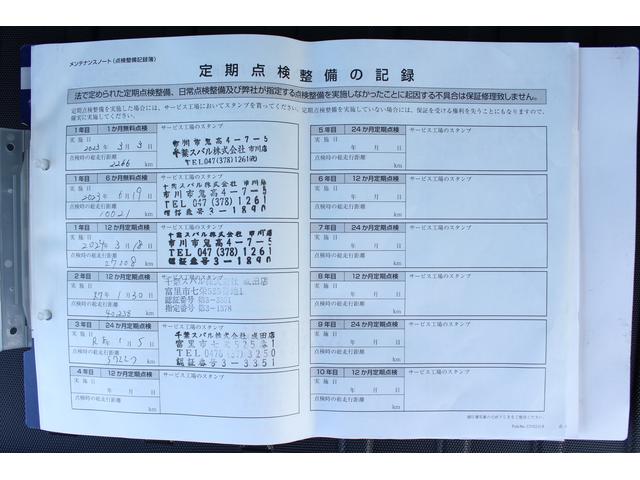 メンテナンスノート(点検整備記録簿)
定期点検整備の記録
法で定められた定期点検整備、日常点検整備及び弊社が指定する点検整備を実施しなかったことに起因する不具合は保証修理致しません。
定期点検整備を実施した場合には、サービス工場においてスタンプを貰ってください。
定期点検整備を実施していない場合には、保証を受ける権利を失うこともなりますので、
確実に実施してください。
1年目 1か月無料点検 サービス工場のスタンプ
実施日
2023年3月3日
点検時の総走行距離
2266 km
市川市鬼高4-7-5
千葉スバル株式会社 市川店
TEL.047(378)1261㈹
1年目 6か月無料点検 サービス工場のスタンプ
実施日
点検時の総走行距離
10021 km
千葉スバル株式会社 市川店
市川市鬼高4-7-5
TEL 047 (378) 1261
認証番号 3-1890
1年目 12か月定期点検 サービス工場のスタンプ
実施日
点検時の総走行距離
km
千葉スバル株式会社 市川店
市川市鬼高4-7-5
TEL 047 (378) 1261
認証番号 3-1890
2年目 12か月定期点検 サービス工場のスタンプ
実施日
年1月30日
点検時の総走行距離
40238 km
千葉スバル株式会社 成田店
富里市七栄525番地1
認証番号 第3-3351
3年目 24か月定期点検 サービス工場のスタンプ
実施日
点検時の総走行距離
km
千葉スバル株式会社 成田店
富里市七栄525番1
TEL 0476 3250
認証番号 3-3351
4年目 12か月定期点検 サービス工場のスタンプ
実施日
年 月 日
点検時の総走行距離
km
5年目 24か月定期点検 サービス工場のスタンプ
実施日
年 月 日
点検時の総走行距離
km
6年目 12か月定期点検 サービス工場のスタンプ
実施日
年 月 日
点検時の総走行距離
km
7年目 24か月定期点検 サービス工場のスタンプ
実施日
年 月 日
点検時の総走行距離
km
8年目 12か月定期点検 サービス工場のスタンプ
実施日
年 月 日
点検時の総走行距離
km
9年目 24か月定期点検 サービス工場のスタンプ
実施日
年 月 日
点検時の総走行距離
km
10年目 12か月定期点検 サービス工場のスタンプ
実施日
年 月 日
点検時の総走行距離
km